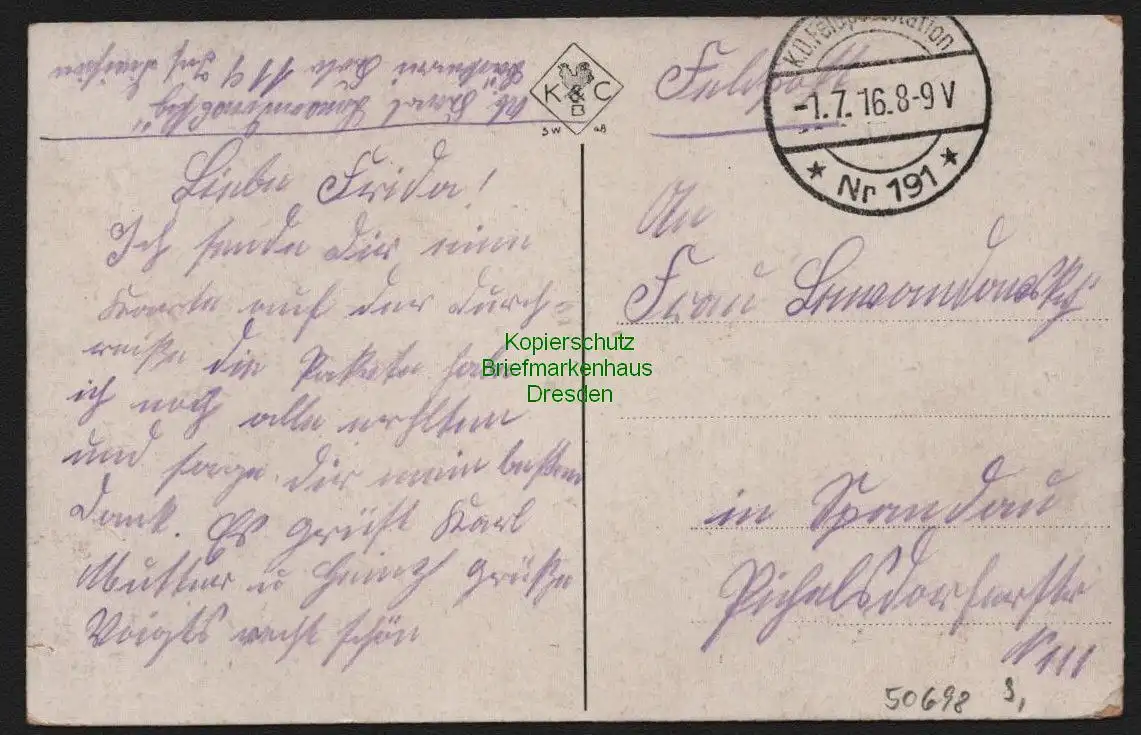 K & C
B
SW 48
Feldpost
K.D. Feldpoststation
-1.7.16. 8-9 V
* Nr 191 *
Liebe Frida!
Ich sende dir eine
Karte auf der Durch=
reise die Pakete habe
ich noch alle erhlten
und sage dir mein besten
Dank. Es grüßt Karl
Mutter u Heinz Grüße
Voigts recht schön
An
Frau Lewandowsky
in Spandau
Pichelsdorferstr
N 111
Kopierschutz
Briefmarkenhaus
Dresden
50698